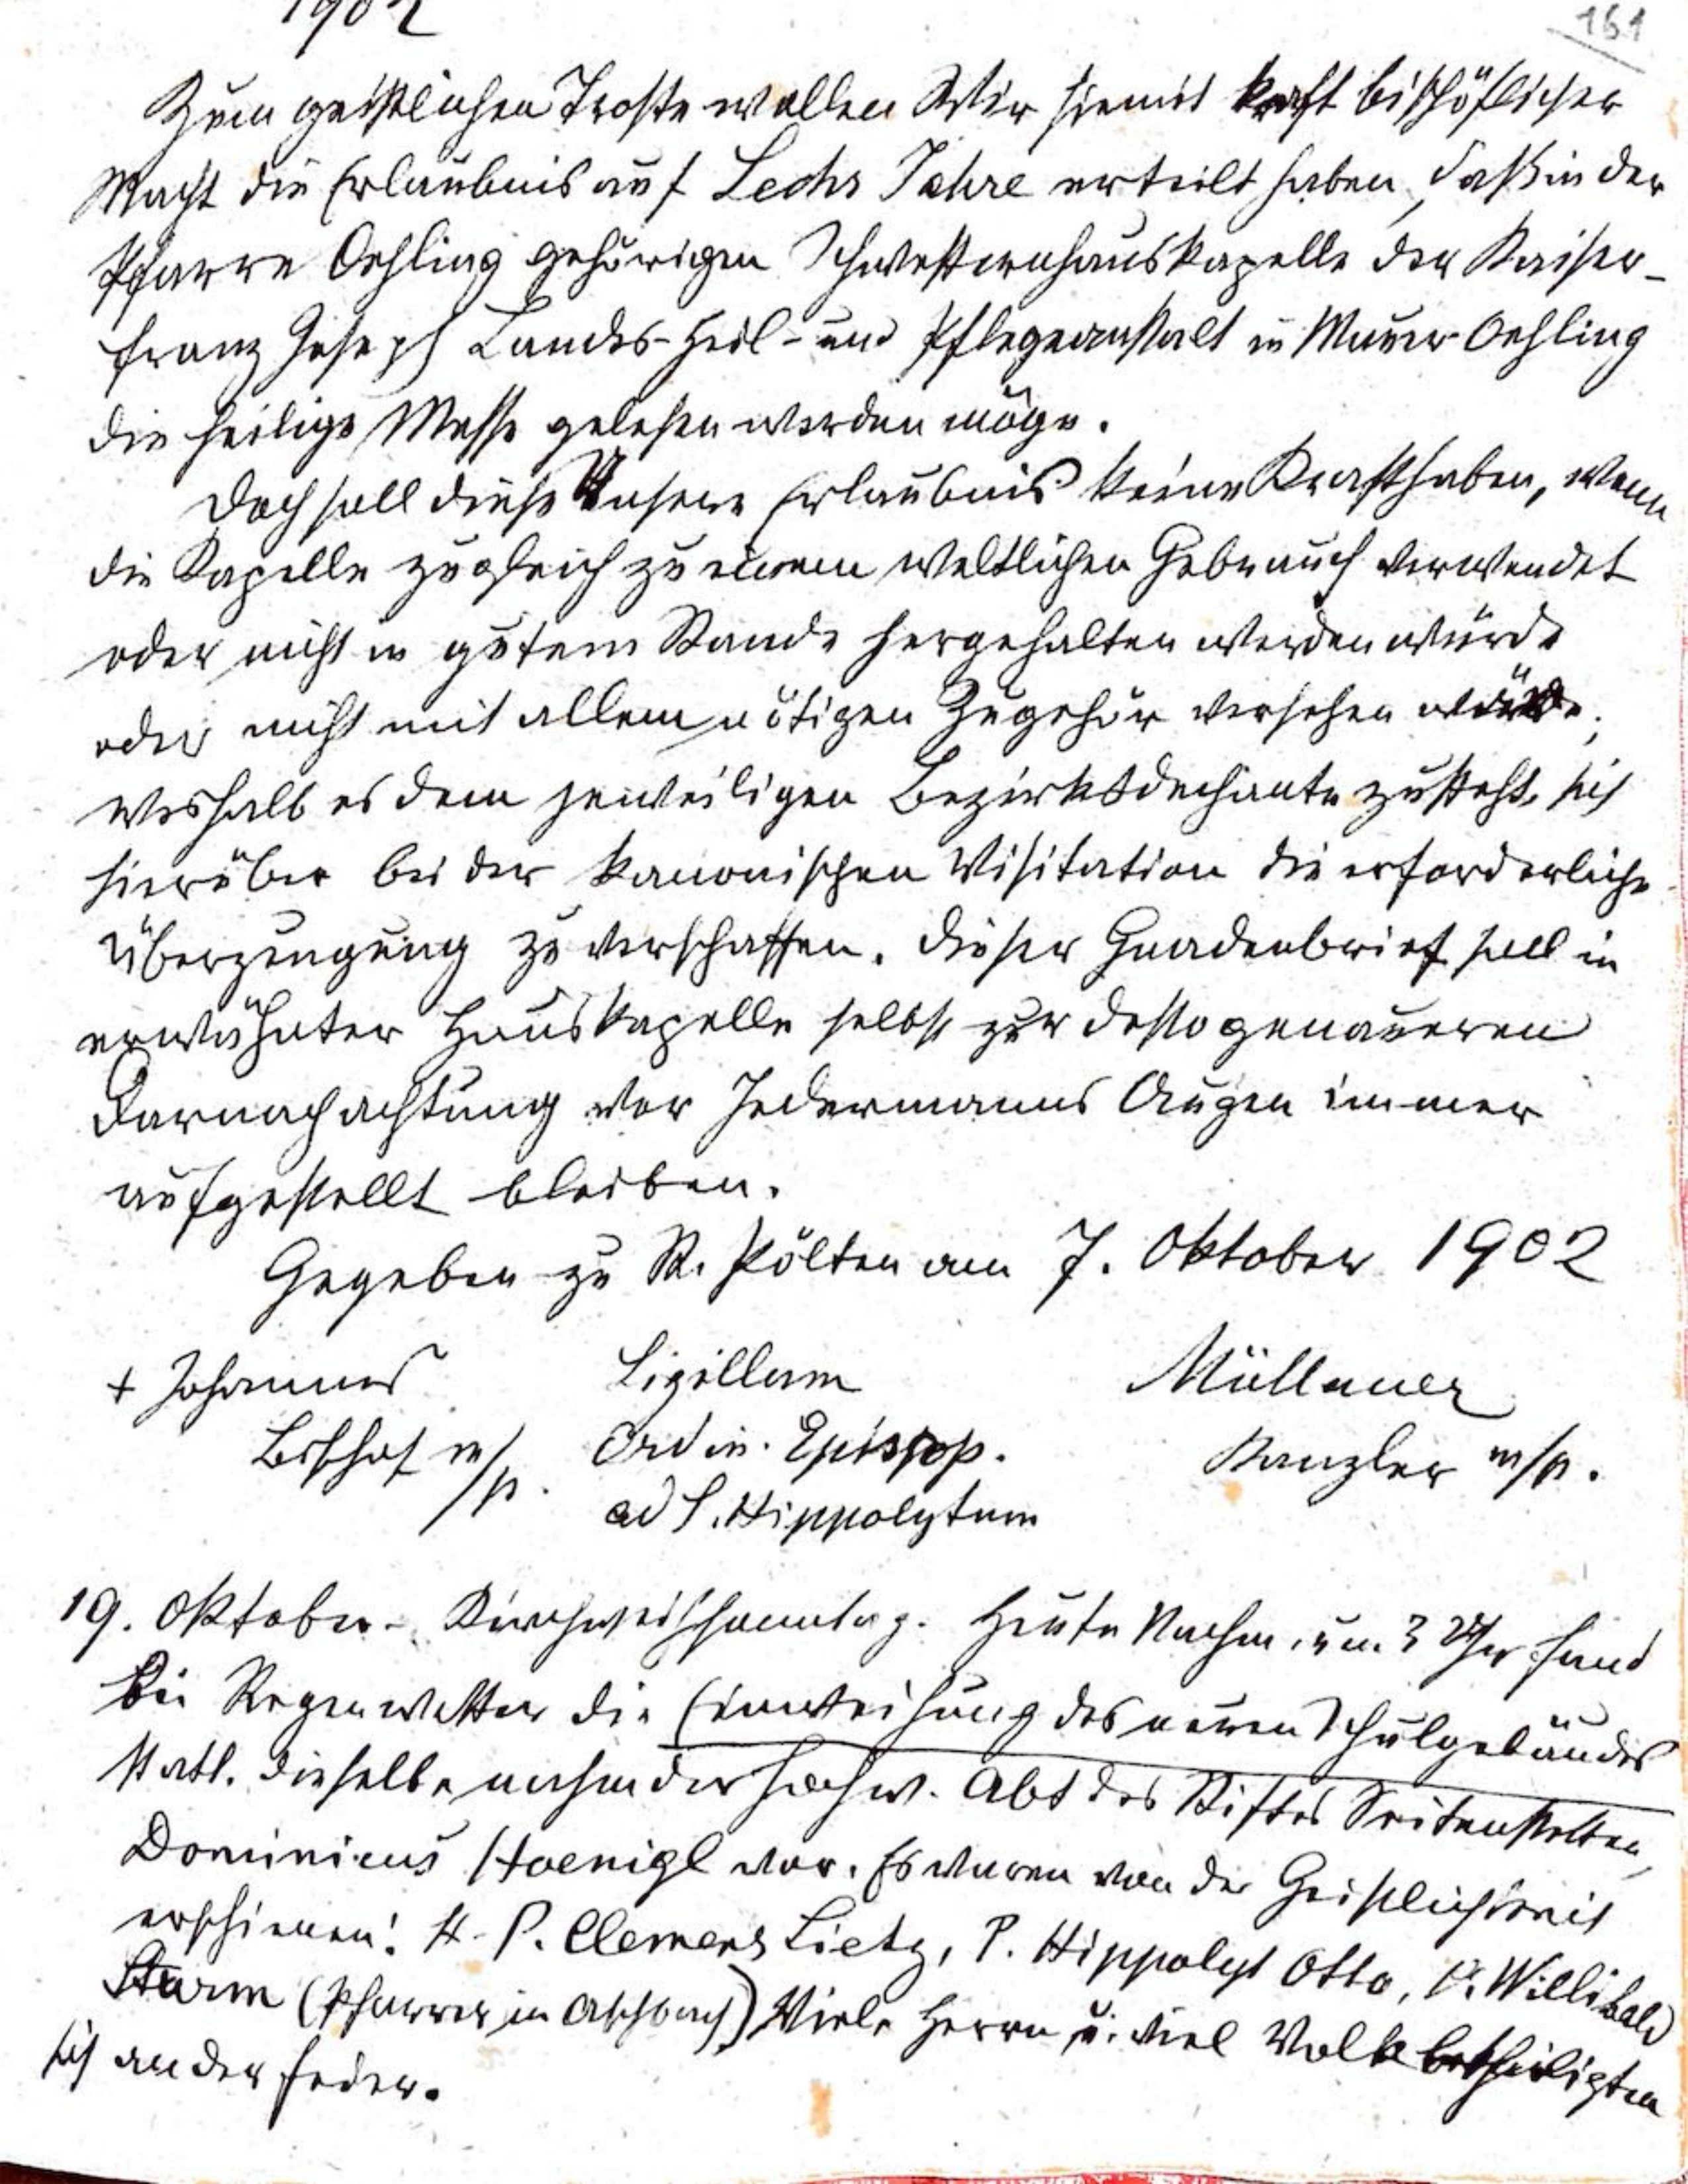 1902
161
Zum geistlichen Troste wollen Wir hiemit kraft bischöflicher
Macht die Erlaubnis auf Sechs Jahre erteilt haben, daß in der
Pfarre Oehling gehörigen Schwesternhauskapelle der Kaiser-
Franz Joseph Landes-Heil- und Pflegeanstalt in Mauer-Oehling
die heilige Messe gelesen werden möge.
Doch soll diese Unsere Erlaubnis keine Kraft haben, wenn
die Kapelle zugleich zu einem weltlichen Gebrauch verwendet
oder nicht in gutem Stande hergehalten werden würde
oder nicht mit allem nötigen Zugehör versehen würde;
weshalb es dem jeweiligen Bezirksdechante zusteht, sich
hierüber bei der kanonischen Visitation die erforderliche
Überzeugung zu verschaffen. Dieser Gnadenbrief soll in
erwähnter Hauskapelle selbst zur desto genaueren
Darnachachtung vor Jedermanns Augen immer
aufgestellt bleiben.
Gegeben zu St. Pölten am 7. Oktober 1902
+ Johannes Sigillum Müllauer
Bischof m/p. Ordin. Episcop. Kanzler m/p.
ad S. Hippolytum
19. Oktober - Kirchweihsonntag. Heute Nachm. um 3 Uhr fand
bei Regenwetter die Einweihung des neuen Schulgebäudes
statt. Dieselbe nahm der hochw. Abt des Stiftes Seitenstetten,
Dominicus Hoenigl vor. Es waren von der Geistlichkeit
erschienen: H. P. Clemens Lietz, P. Hippolyt Otto, P. Willibald
Sturm (Pfarrer in Aschbach) Viele Herrn u. viel Volk betheiligten
sich an der Feier.